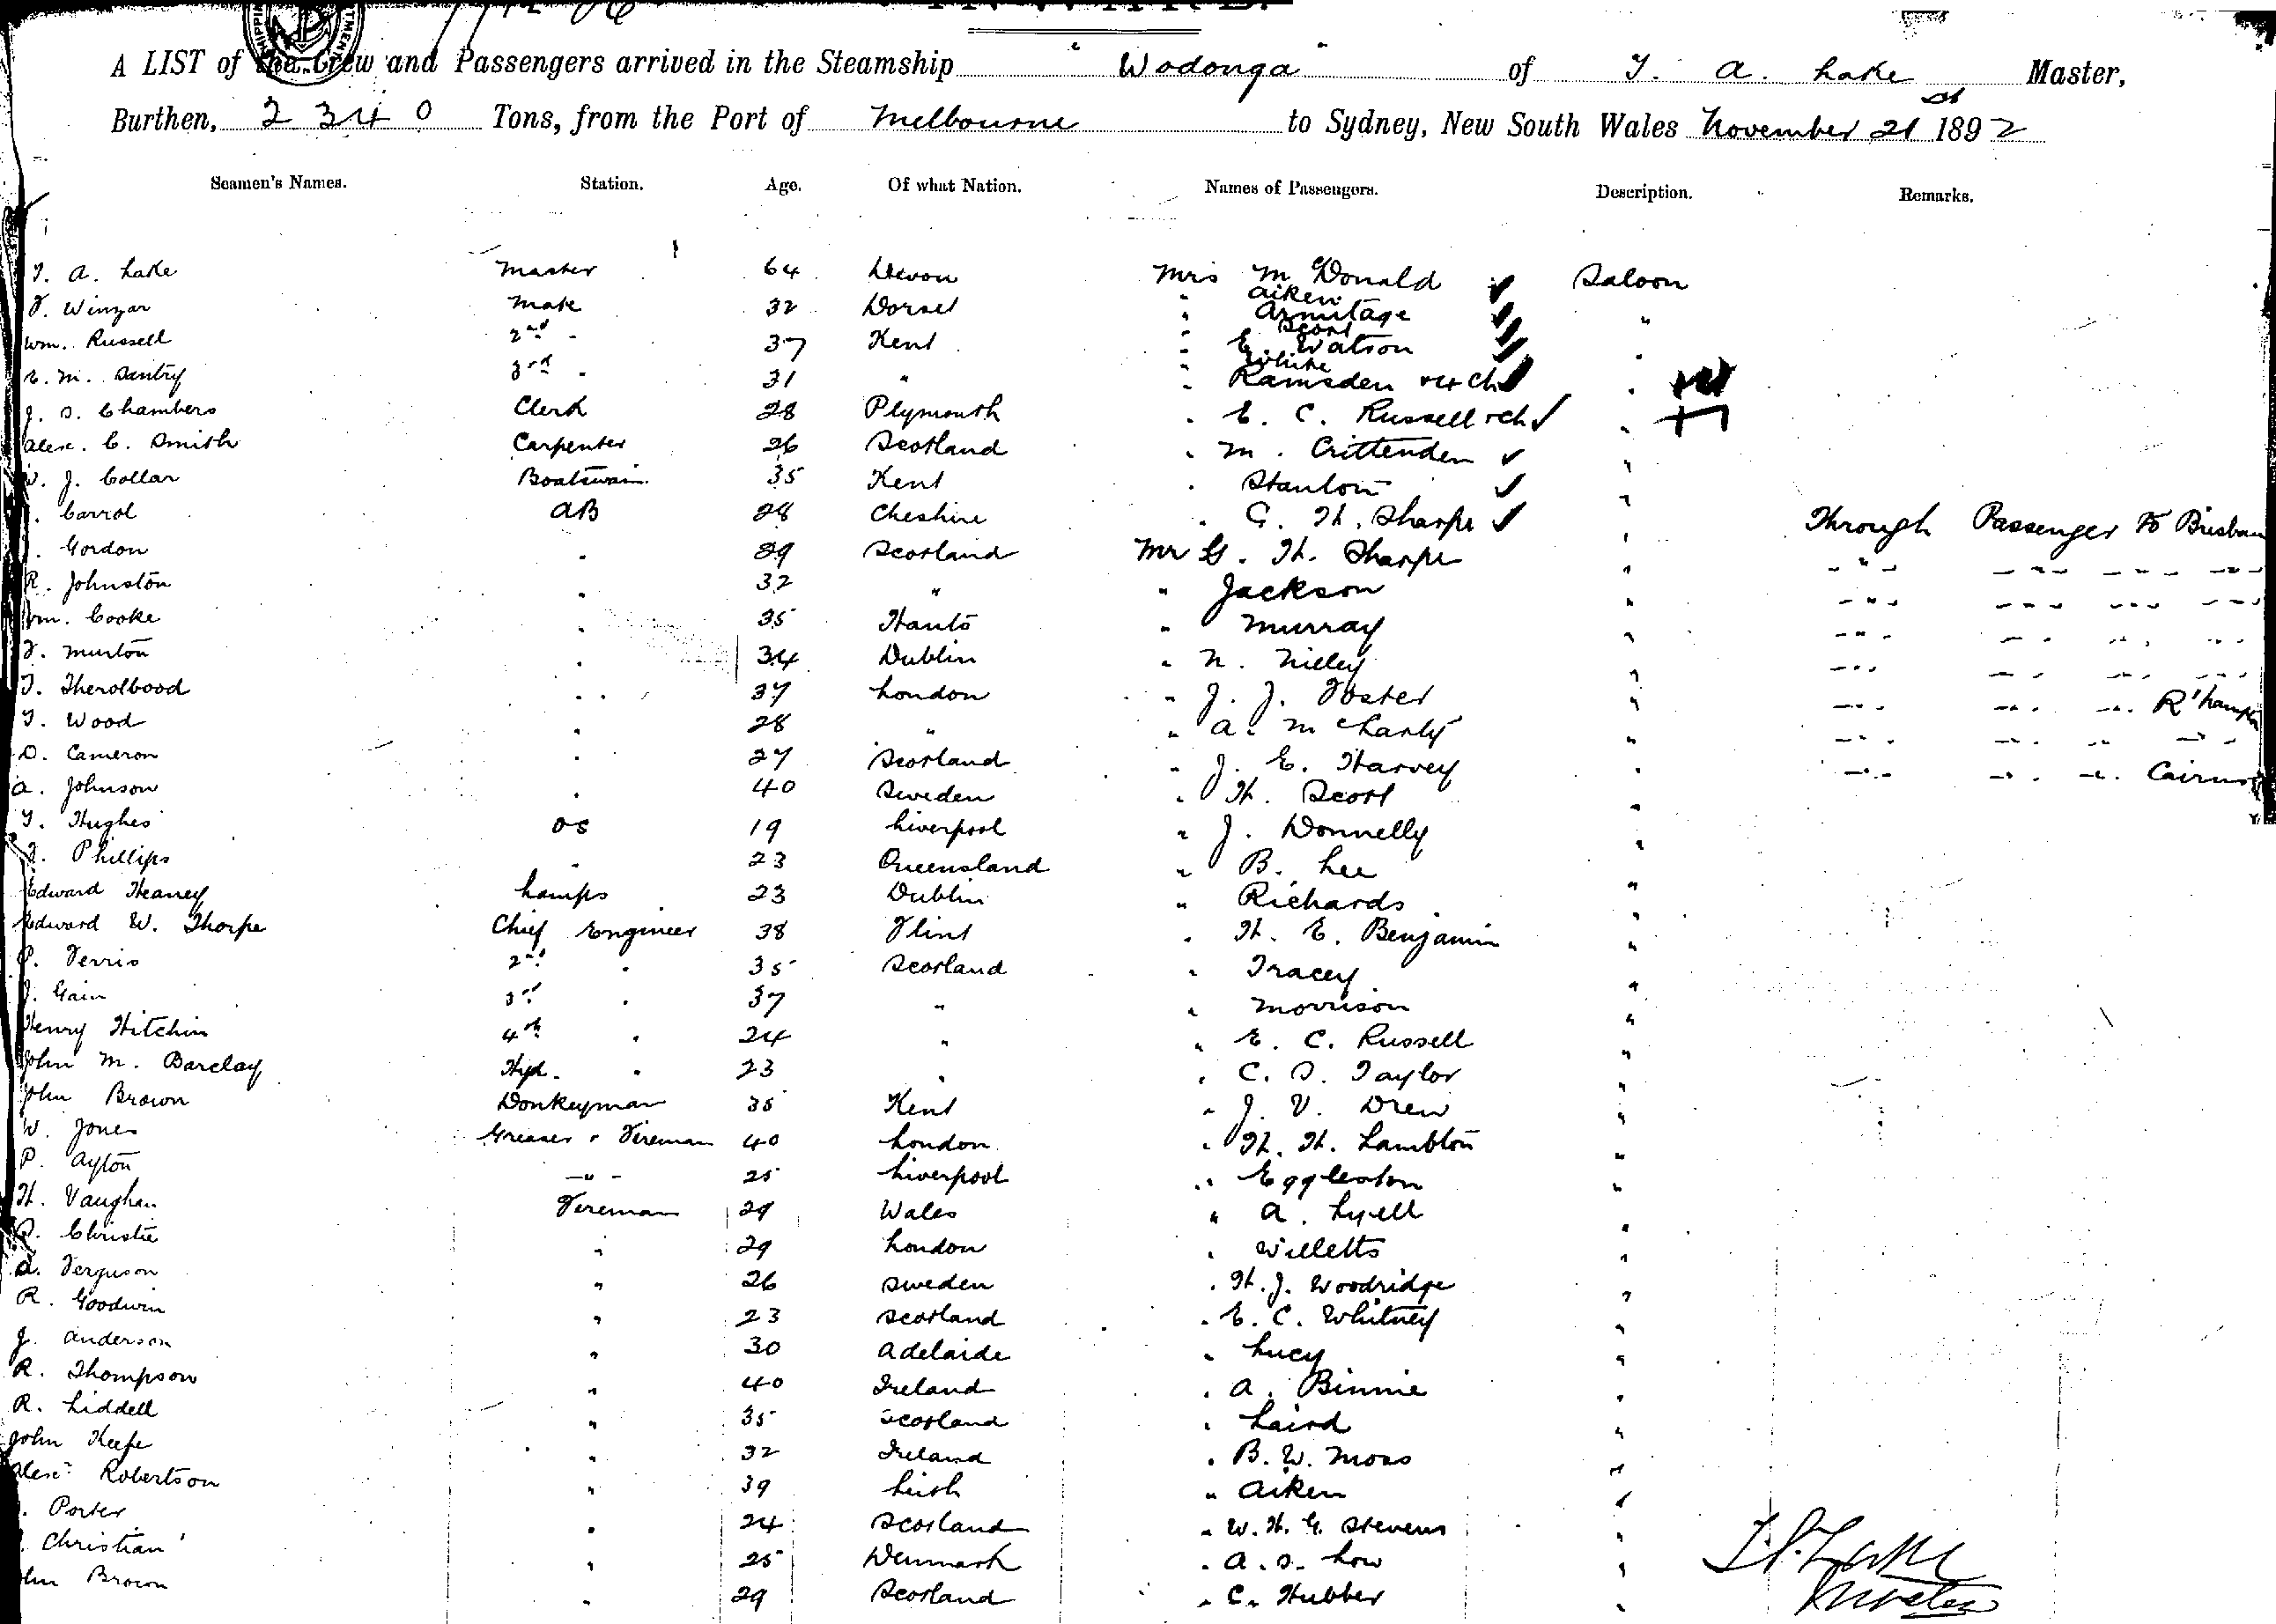 A LIST of the Crew and Passengers arrived in the Steamship "Wodonga" of T. A. Lake Master,
Burthen, 2340 Tons, from the Port of Melbourne to Sydney, New South Wales November 21st 1892
Seamen's Names. Station. Age. Of what Nation. Names of Passengers. Description. Remarks.
T. A. Lake Master 64 Devon Mrs McDonald Saloon
" Aiken
F. Winzar Mate 32 Dorset " Armitage "
" Scott
Wm. Russell 2nd " 37 Kent " E. Watson "
" White
E. M. Santry 3rd " 31 " " Ramsden + ch "
J. S. Chambers Clerk 28 Plymouth " E. C. Russell + ch "
Alex. C. Smith Carpenter 26 Scotland " M. Crittenden "
W. J. Collar Boatswain 35 Kent " Stanton "
Carrol AB 28 Cheshire " G. H. Sharpe " Through Passenger to Brisbane
Gordon " 29 Scotland Mr G. H. Sharpe " " " " "
R. Johnston " 32 " " Jackson " " " " "
Wm. Cooke " 35 Hants " Murray " " " " "
F. Murton " 34 Dublin " N. Nilley " " " " "
T. Therolbood " 37 London " J. J. Foster " " " " R'hampton
T. Wood " 28 " " A. McCharty " " " " "
D. Cameron " 27 Scotland " J. E. Harvey " " " " Cairns
A. Johnson " 40 Sweden " H. Scott "
T. Hughes OS 19 Liverpool " J. Donnelly "
Phillips " 23 Queensland " B. Lee "
Edward Heaney Lamps 23 Dublin " Richards "
Edward W. Thorpe Chief Engineer 38 Flint " H. E. Benjamin "
P. Ferris 2nd " 35 Scotland " Tracey "
J. Gain 3rd " 37 " " Morrison "
Henry Hitchin 4th " 24 " " E. C. Russell "
John M. Barclay " 23 " " C. S. Taylor "
John Brown Donkeyman 35 Kent " J. V. Drew "
W. Jones Greaser + Fireman 40 London " H. H. Lambton "
P. Ayton " 25 Liverpool " Eggleston "
H. Vaughan Fireman 29 Wales " A. Lyell "
Christie " 29 London " Willetts "
A. Ferguson " 26 Sweden " H. J. Woodridge "
R. Goodwin " 23 Scotland " E. C. Whitney "
J. Anderson " 30 Adelaide " Lucy "
R. Thompson " 40 Ireland " A. Binnie "
R. Liddell " 35 Scotland " Laird "
John Keefe " 32 Ireland " B. W. Moss "
Alexr Robertson " 39 Leith " Aiken "
Porter " 24 Scotland " W. H. G. Stevens "
Christian " 25 Denmark " A. S. Low "
John Brown " 29 Scotland " C. Hubber "
T. A. Lake
Master